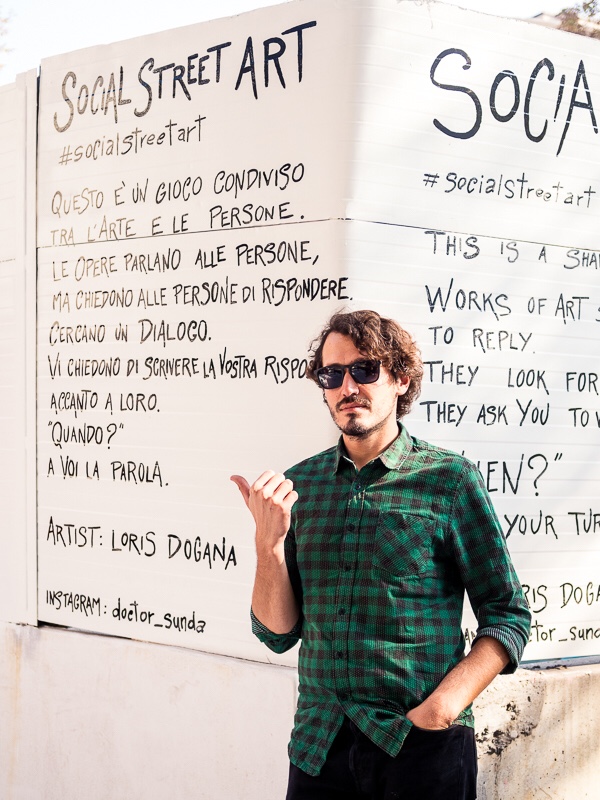 SOCIAL STREET ART
#socialstreetart
QUESTO E' UN GIOCO CONDIVISO
TRA L'ARTE E LE PERSONE.
LE OPERE PARLANO ALLE PERSONE,
MA CHIEDONO ALLE PERSONE DI RISPONDERE.
CERCANO UN DIALOGO.
VI CHIEDONO DI SCRIVERE LA VOSTRA RISPOS
ACCANTO A LORO.
"QUANDO?"
A VOI LA PAROLA.
ARTIST: LORIS DOGANA
INSTAGRAM: doctor_sunda
SOCIA
#socialstreetart
THIS IS A SHA
WORKS OF ART
TO REPLY.
THEY LOOK FOR
THEY ASK YOU TO
HEN?"
YOUR TUR
RIS DOGA
tor_sund